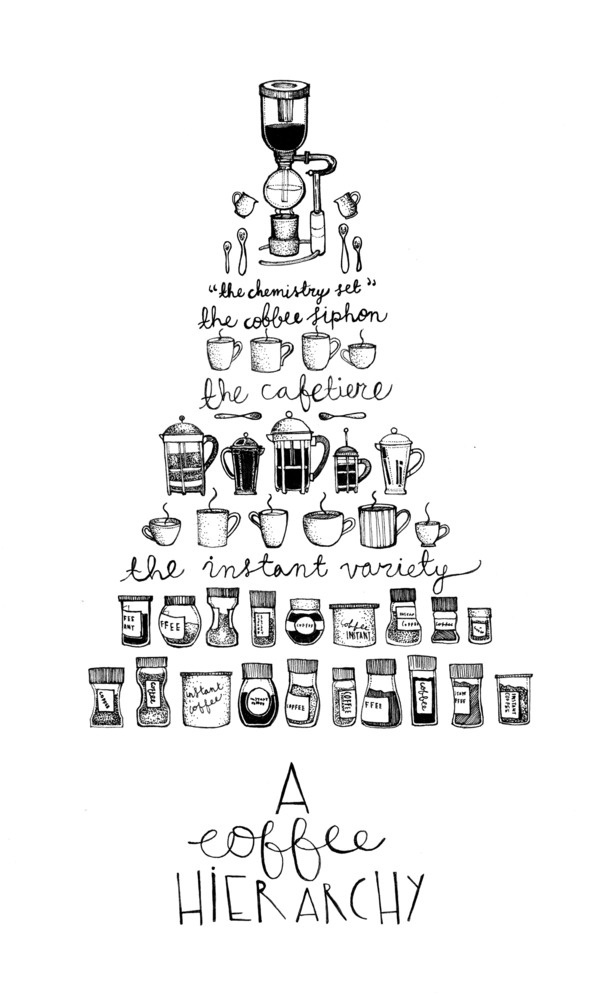 "the chemistry set"
the coffee siphon
the cafetiere
the instant variety
FFEE
COFFEE
coffee
INSTANT
INSTANT
COFFEE
coffee
COFFEE
coffee
instant
coffee
INSTANT
COFFEE
COFFEE
FFEE
coffee
INSTANT
COFFEE
A
coffee
HiERARCHY